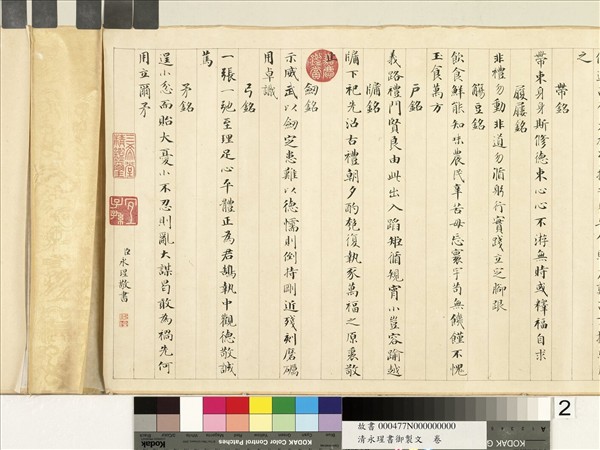 之
帶銘
帶束身身斯修德束心心不游無時或釋福自求
履屨銘
非禮勿動非道勿循躬行實踐立定腳跟
觴豆銘
飲食鮮能知味農民辛苦毋忘寰宇苟無饑饉不愧
玉食萬方
戶銘
義路禮門賢良由此出入蹈矩循規宵小豈容踰越
牖銘
牖下祀先沿古禮朝夕酌匏復執豕萬福之原裏敬
止
劍銘
示威武以劍定患難以德懦則倒持剛近殘刻磨礪
用卓識
弓銘
一張一弛至理足心平體正為君鵠執中觀德敬誠
篤
矛銘
逞小忿而貽大憂小不忍則亂大謀曷敢為禍先何
用立爾矛
臣永瑆敬書
故書000477N000000000
清永瑆書御製文 卷
KODAK Color Control Patches
KODAK GRAY
2